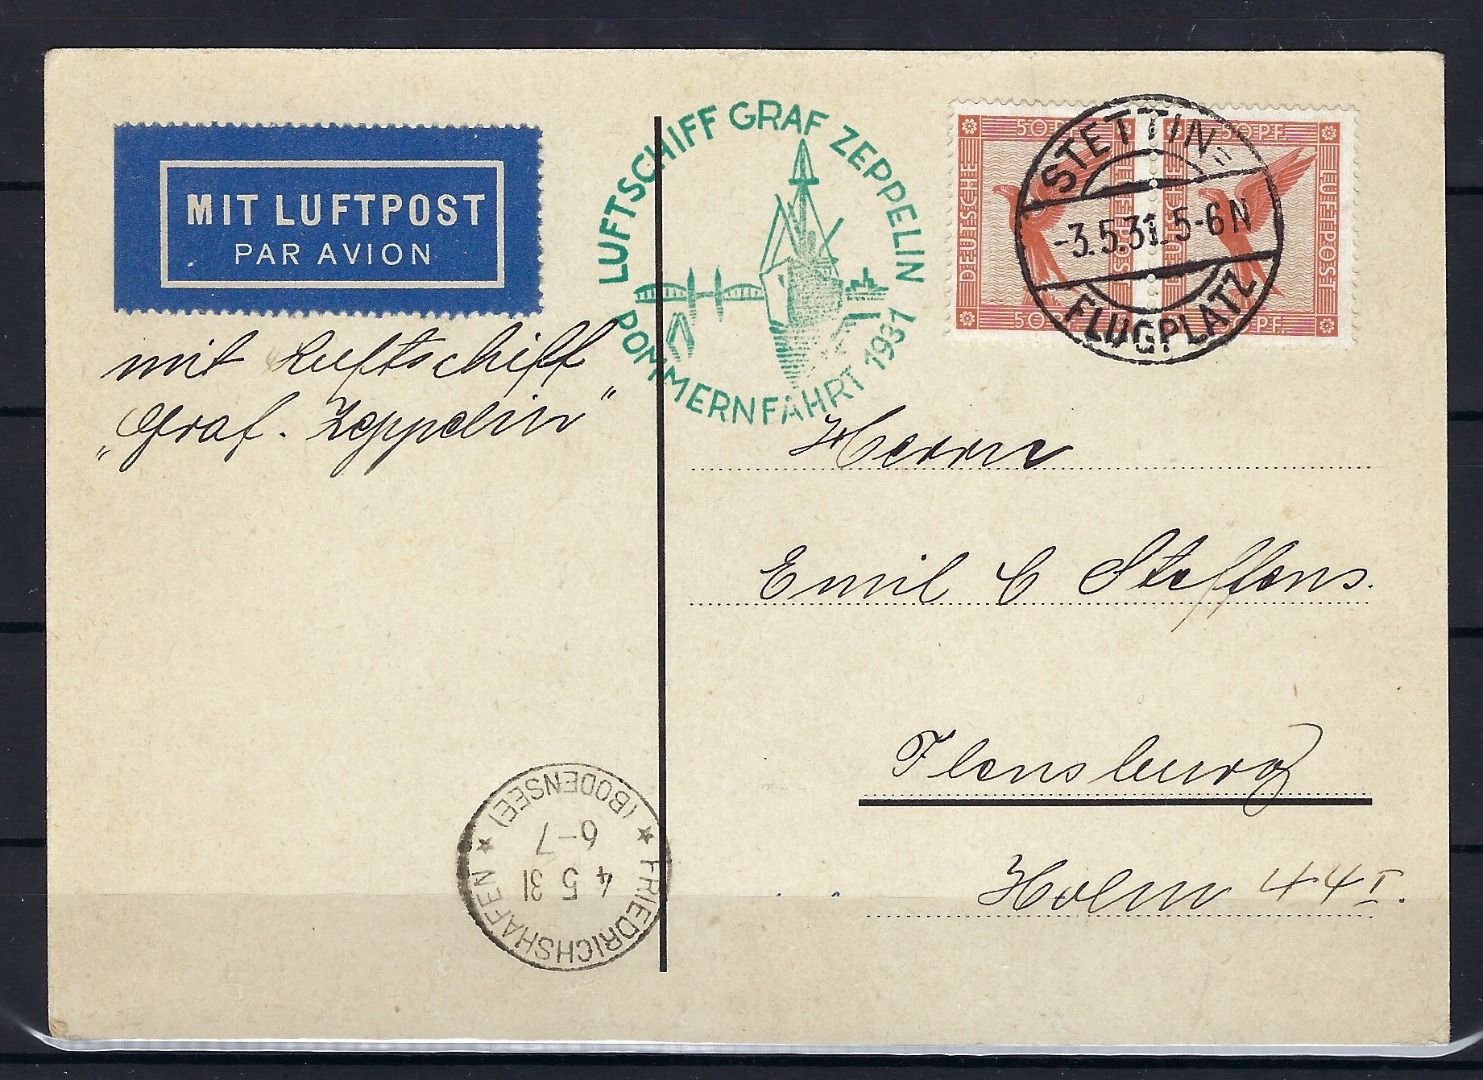 MIT LUFTPOST
PAR AVION
LUFTSCHIFF GRAF ZEPPELIN
POMMERNFAHRT 1931
50 PF. 50 PF.
DEUTSCHE LUFTPOST DEUTSCHE LUFTPOST
50 PF. 50 PF.
STETTIN=
-3.5.31.5-6N
FLUGPLATZ
mit Luftschiff
„Graf. Zeppelin"
Herrn
Emil C Steffens.
Flensburg
Holm 44 I.
★ FRIEDRICHSHAFEN ★
4 5 31
6-7
(BODENSEE)